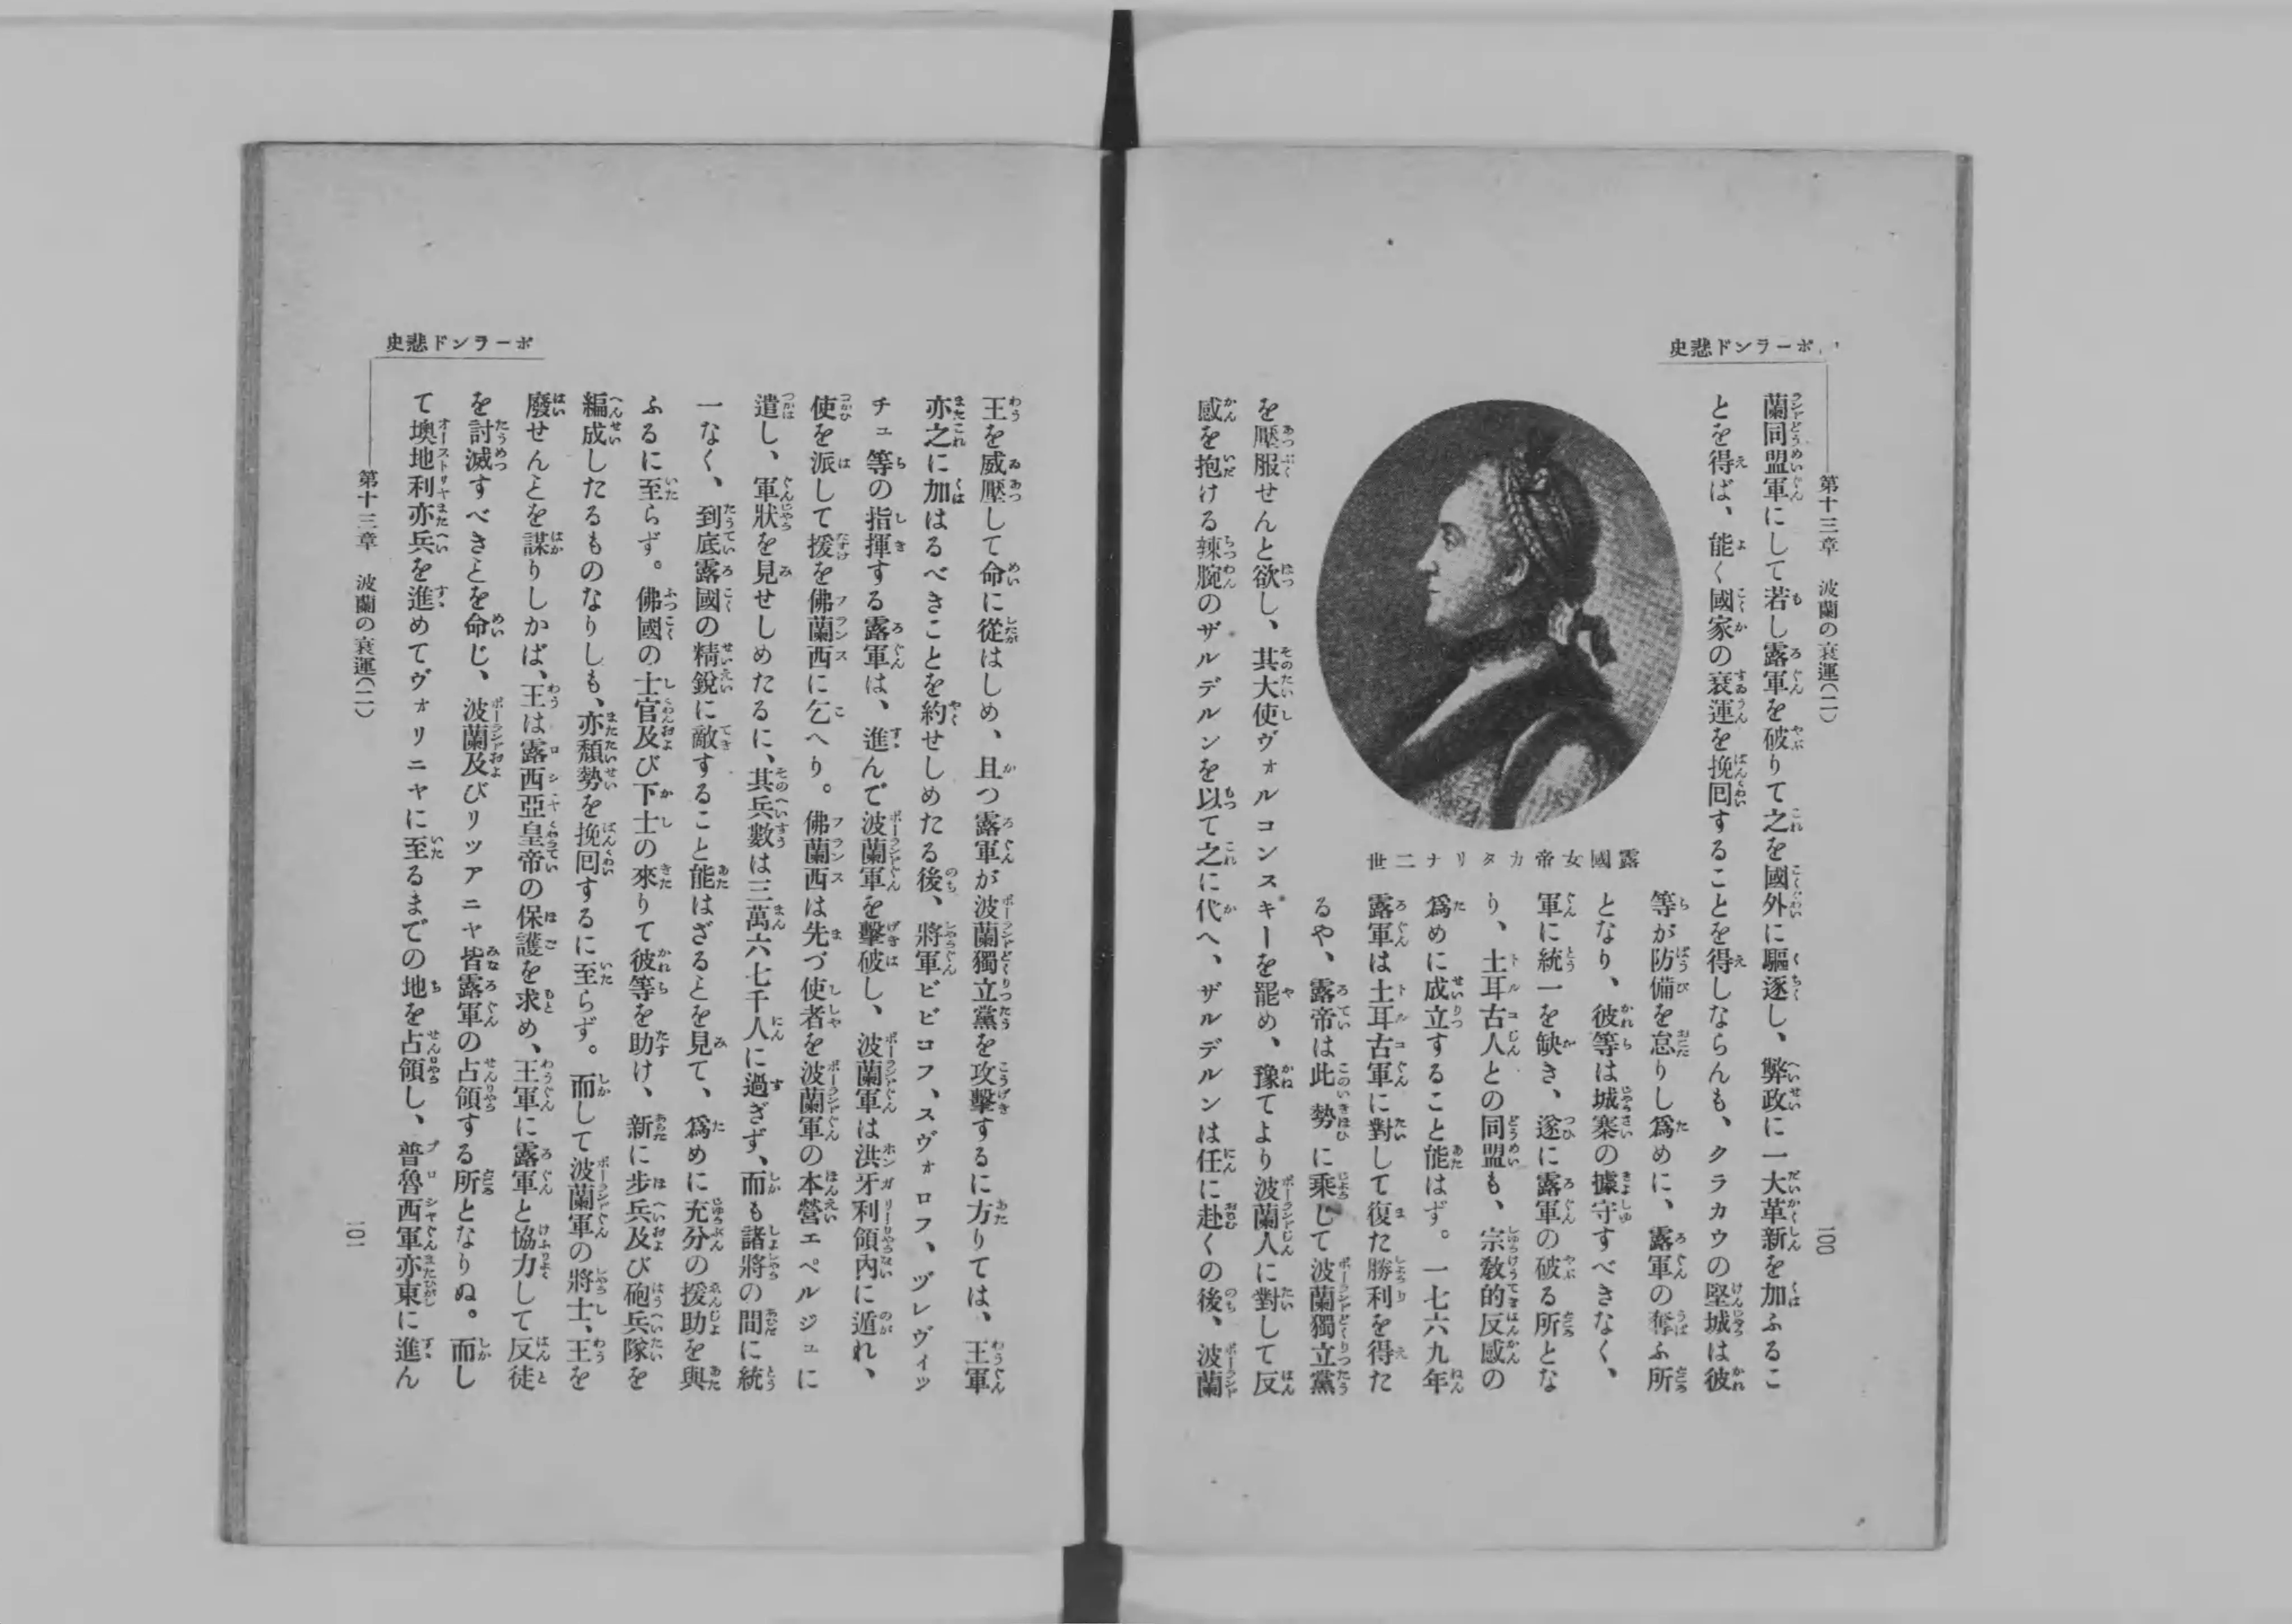 ポーランド悲史
第十三章 波蘭の衰運(二)
一〇〇
蘭同盟軍にして若し露軍を破りて之を國外に驅逐し、弊政に一大革新を加ふるこ
とを得ば、能く國家の衰運を挽回することを得しならんも、クラカウの堅城は彼
等が防備を怠りし爲めに、露軍の奪ふ所
となり、彼等は城寨の據守すべきなく、
軍に統一を缺き、遂に露軍の破る所とな
り、土耳古人との同盟も、宗敎的反感の
爲めに成立すること能はず。一七六九年
露軍は土耳古軍に對して復た勝利を得た
るや、露帝は此勢に乘じて波蘭獨立黨
露國女帝カタリナ二世
を壓服せんと欲し、其大使ヴォルコンスキーを罷め、豫てより波蘭人に對して反
感を抱ける辣腕のザルデルンを以て之に代へ、ザルデルンは任に赴くの後、波蘭
王を威壓して命に從はしめ、且つ露軍が波蘭獨立黨を攻擊するに方りては、王軍
亦之に加はるべきことを約せしめたる後、將軍ビビコフ、スヴォロフ、ヅレヴィッ
チュ等の指揮する露軍は、進んで波蘭軍を擊破し、波蘭軍は洪牙利領內に遁れ、
使を派して援を佛蘭西に乞へり。佛蘭西は先づ使者を波蘭軍の本營エペルジュに
遣し、軍狀を見せしめたるに、其兵數は三萬六七千人に過ぎず、而も諸將の間に統
一なく、到底露國の精銳に敵すること能はざるとを見て、爲めに充分の援助を與
ふるに至らず。佛國の士官及び下士の來りて彼等を助け、新に步兵及び砲兵隊を
編成したるものなりしも、亦頽勢を挽回するに至らず。而して波蘭軍の將士、王を
廢せんとを謀りしかば、王は露西亞皇帝の保護を求め、王軍に露軍と協力して反徒
を討滅すべきとを命じ、波蘭及びリツアニヤ皆露軍の占領する所となりぬ。而し
て墺地利亦兵を進めてヴォリニヤに至るまでの地を占領し、普魯西軍亦東に進ん
ポーランド悲史
第十三章 波蘭の衰運(二)
一〇一